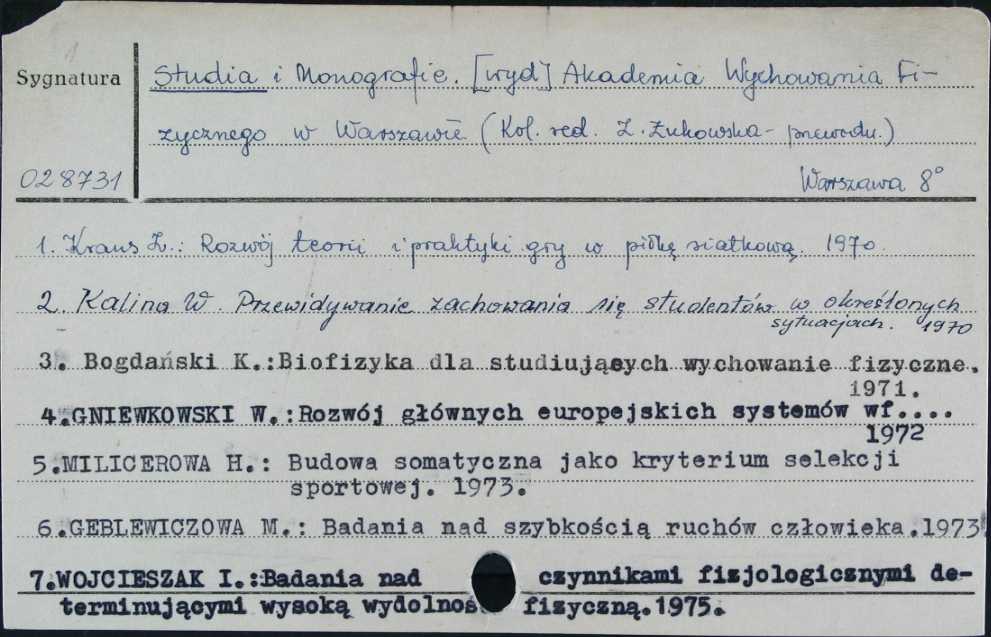 Sygnatura
Studia i Monografie. [wyd] Akademia Wychowania Fi-
zycznego w Warszawie (Kol. red. Z. Żukowska - przewodn.)
028731
Warszawa 8°
1. Kraus Z.: Rozwój teorii i praktyki gry w piłkę siatkową. 1970.
2. Kalina W. Przewidywanie zachowania się studentów w określonych
sytuacjach. 1970
3. Bogdański K.:Biofizyka dla studiujących wychowanie fizyczne.
1971.
4.GNIEWKOWSKI W.:Rozwój głównych europejskich systemów wf....
1972
5.MILICEROWA H.: Budowa somatyczna jako kryterium selekcji
sportowej. 1973.
6.GEBLEWICZOWA M.: Badania nad szybkością ruchów człowieka.1973
7.WOJCIESZAK I.:Badania nad czynnikami fizjologicznymi de-
terminującymi wysoką fizyczną.1975.